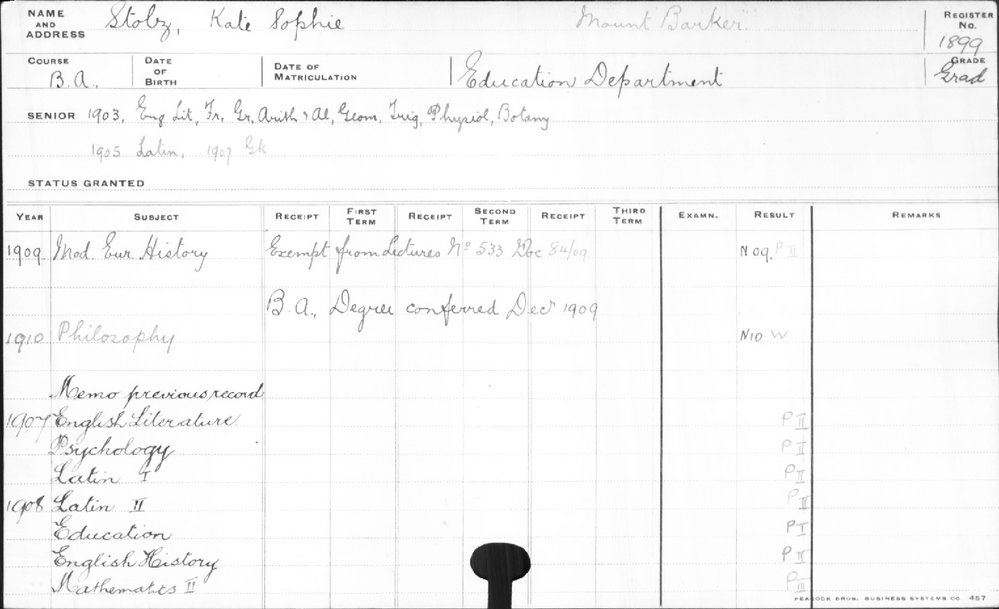 NAME AND ADDRESS Stolz, Kate Sophie Mount Barker REGISTER No. 1899
COURSE B.A. DATE OF BIRTH DATE OF MATRICULATION Education Department GRADE Grad
SENIOR 1903, Eng Lit, Fr, Gr, Arith & Al, Geom, Trig, Physiol, Botany
1905 Latin, 1907 Gk
STATUS GRANTED
YEAR SUBJECT RECEIPT FIRST TERM RECEIPT SECOND TERM RECEIPT THIRD TERM EXAMN. RESULT REMARKS
1909 Mod. Eur. History Exempt from Lectures No 533 Doc 84/09 N 09. P II
B.A., Degree conferred Decr 1909
1910 Philosophy N10 W
Memo previous record
1907 English Literature P II
Psychology P I
Latin I P II
1908 Latin II P III
Education P I
English History P II
Mathematics II P III
PEACOCK BROS. BUSINESS SYSTEMS CO. 457